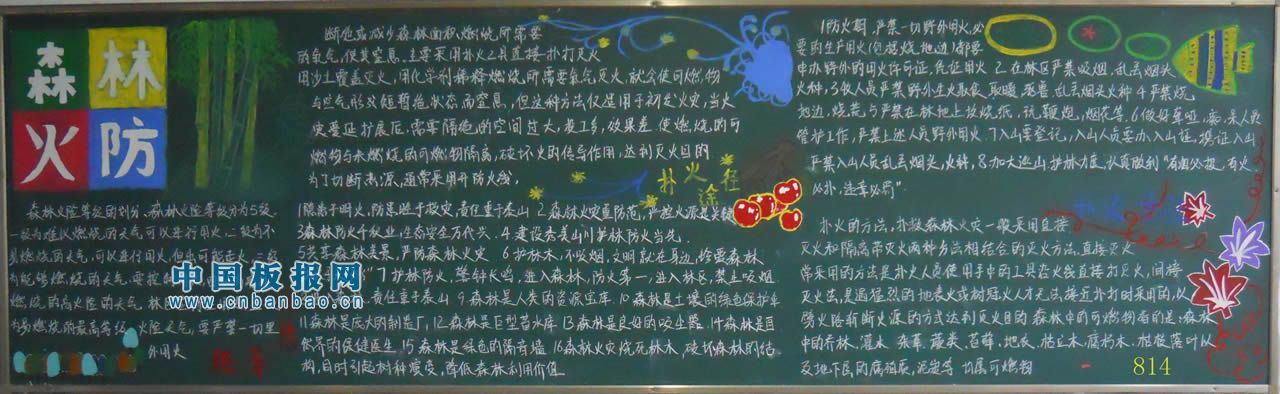 森林
火防
森林火险等级的划分:森林火险等级分为5级
一级为难以燃烧的天气可以进行用火 二级为不
易燃烧的天气,可以进行用火,但
为能够燃烧的天气,要控
燃烧的高火险的天气 林
为易燃烧的最高等级火险天气,要严禁一切里
外用火
中国板报网
www.cnbanbao.cn
断绝或减少森林面积燃烧所需要
的氧气,使其窒息,主要采用扑火工具直接扑打灭火
用沙土覆盖灭火,用化学剂稀释燃烧所需要氧气灭火,就会使可燃物
与空气形成短暂绝状态而窒息,但这种方法仅适用于初发火灾,当火
灾蔓延扩展后,需要隔绝的空间过大,投工多,效果差.使燃烧的可
燃物与未燃烧的可燃物隔离,破坏火的传导作用,达到灭火目的
为了切断热源,通常采用开防火线,
扑火
途径
1隐患于明火,防患胜于救灾,责任重于泰山 2.森林火灾重防范,严控火源是关键
3森林防火千秋业,生态安全万代兴.4.建设秀美山川护林防火当先.
5共享森林美景,严防森林火灾 6护林木,不吸烟,文明就在身边,珍爱森林
7护林防火,警钟长鸣,进入森林,防火第一,进入林区,禁止吸烟
责任重于泰山 9森林是人类的资源宝库 10森林是土壤的绿色保护伞
11森林是庞大的制造厂,12.森林是巨型蓄水库 13森林是良好的吸尘器.14森林是自
然界的保健医生 15森林是绿色的隔音墙 16森林火灾烧死林木,破坏森林的结
构,且时引起树种演变,降低森林利用价值
1防火期,严禁一切野外用火,必
要的生产用火
申办野外的用火许可证,凭证用火 2.在林区严禁吸烟,乱丢烟头
火种,3.牧人员严禁野外生火取食,取暖,乱丢烟头火种 4.严禁烧
地边,烧荒 5严禁在林地上坟烧纸,玩鞭炮,烟花等.6做好
管护工作,严禁上述人员野外用火 7入山要登记,入山人员要办入山证,携证入山
严禁入山人员乱丢烟头,火种,8.加大巡山护林力度,认真做到"有烟必报,有火
必扑,违章必罚"
扑火的方法,扑救森林火灾一般采用直接
灭火和隔离带灭火两种方法相结合的灭火方法.直接灭火
常采用的方法是扑火人员使用手中的工具在火线直接打灭火,间接
灭火法,是遇猛烈的地表火或树冠火人才无法接近扑打时采用的,以
劈火路断断火源的方法达到灭火目的 森林中的可燃物指的是,森林
中的乔林,灌木 杂草,蕨类,苔藓,地衣,枯立木.腐朽木.枯枝落叶以
及地下层的腐殖质,泥炭等 均属可燃物
814